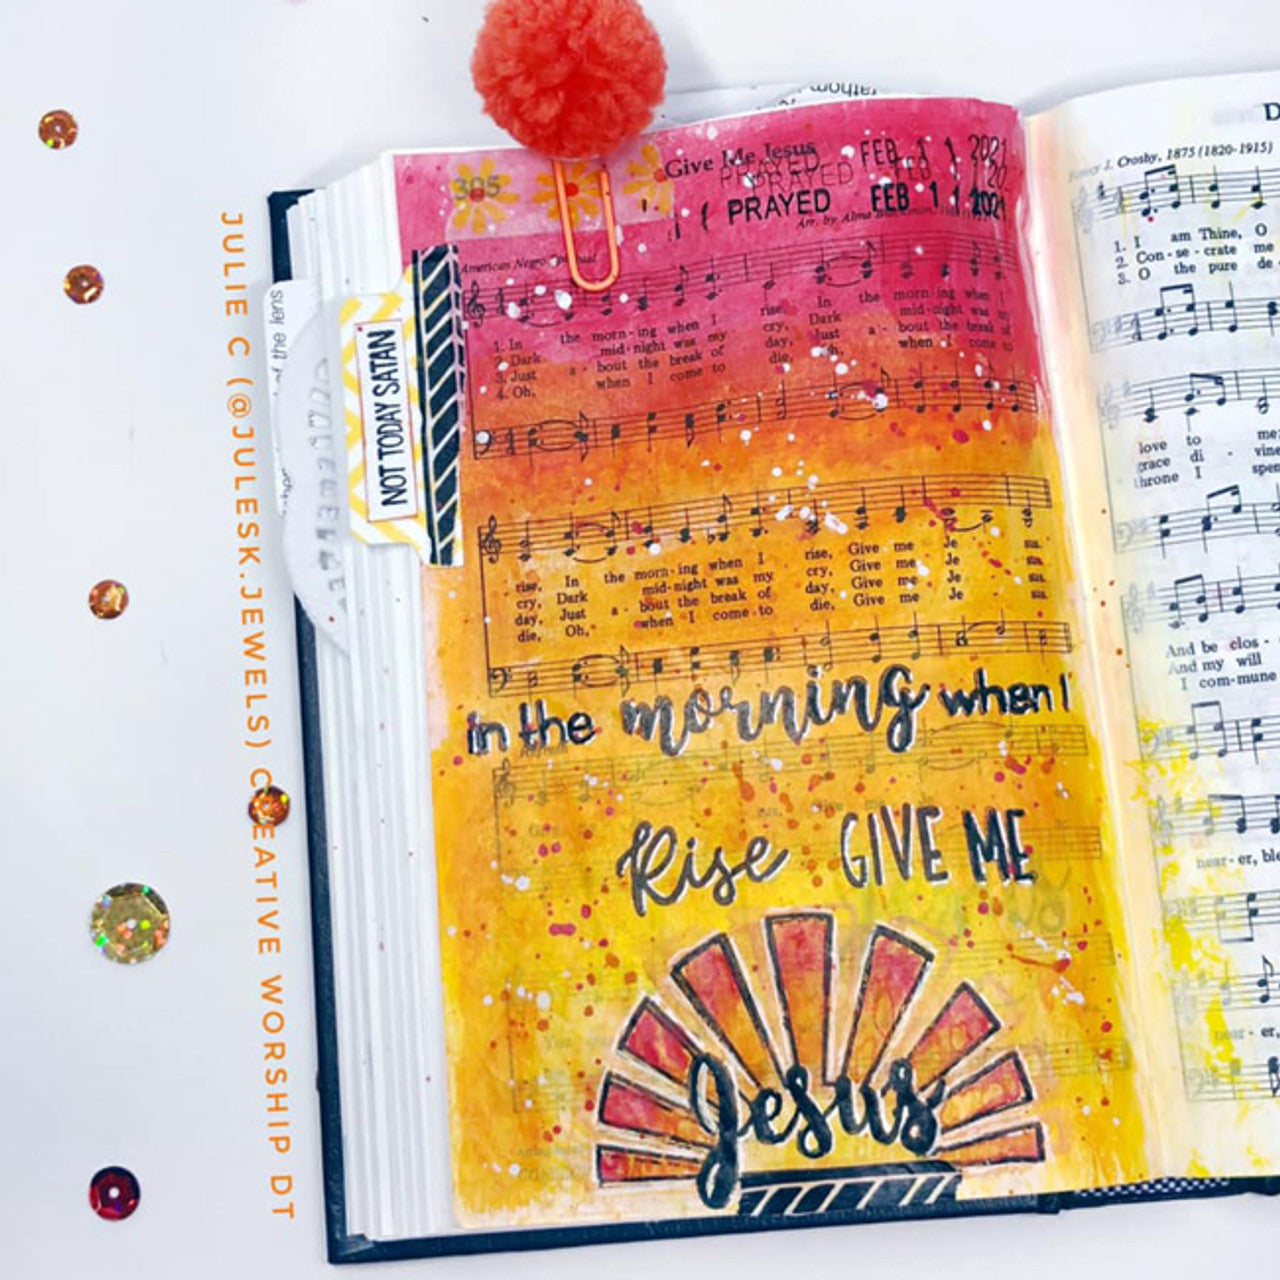 JULIE C (@JULESK.JEWELS) CREATIVE WORSHIP DT
NOT TODAY SATAN
305
Give Me Jesus
PRAYED FEB 1 1 2021
PRAYED FEB 1 1 20
PRAYED FEB 1 1 2021
Arr. by Alma
American Negro
1. In the morn-ing when I rise, In the morn-ing when I
2. Dark mid-night was my cry, Dark mid-night was my
3. Just a-bout the break of day, Just a-bout the break of
4. Oh, when I come to die, Oh, when I come to
rise, In the morn-ing when I rise, Give me Je sus.
cry, Dark mid-night was my cry, Give me Je sus.
day, Just a-bout the break of day, Give me Je sus.
die, Oh, when I come to die, Give me Je sus.
in the morning when I
Rise GIVE ME
Jesus
J. Crosby, 1875 (1820-1915)
1. I am Thine, O
2. Con-se-crate me
3. O the pure de-
love to me;
grace di-vine
throne I spen
And be clos-
And my will
I com-mune
near-er, ble
near-er,